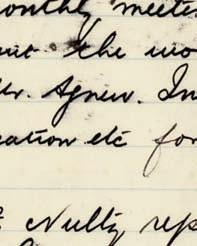 onthly meete
out the wo
r. Agnew. In
cation etc for
Nultz rep